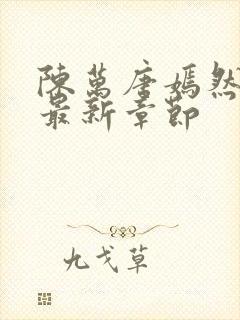 陳萬唐嫣然
最新章節
九戈草